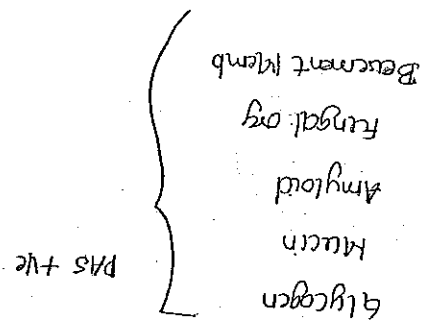 Glycogen
Mucin
Amyloid
Fungal org
Basement Memb
PAS +ve